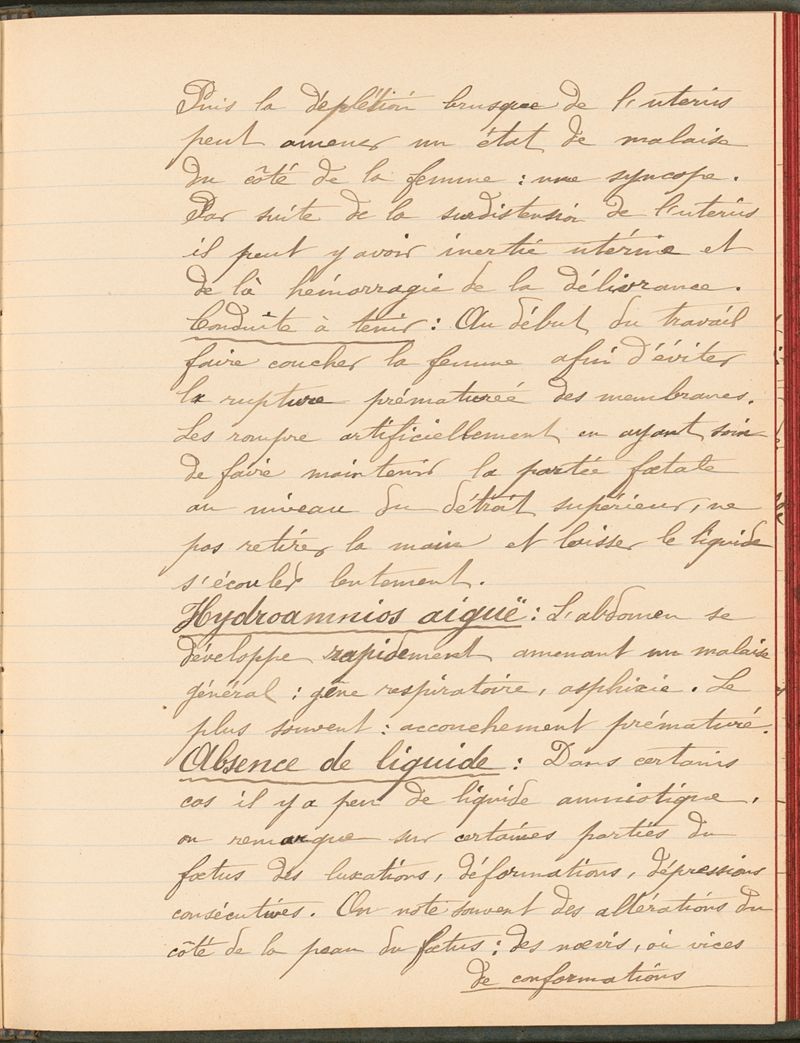 Puis la déplétion brusque de l'utérus
peut amener un état de malaise
du côté de la femme : une syncope.
Par suite de la surdistension de l'utérus
il peut y avoir inertie utérine et
de là hémorragie de la délivrance.
Conduite à tenir : Au début du travail
faire coucher la femme afin d'éviter
la rupture prématureé des membranes.
Les rompre artificiellement en ayant soin
de faire maintenir la partie fœtale
au niveau du détroit supérieur, ne
pas retirer la main et laisser le liquide
s'écouler lentement.
Hydroamnios aiguë : L'abdomen se
développe rapidement amenant un malaise
général : gêne respiratoire, asphixie. Le
plus souvent : accouchement prématuré.
Absence de liquide : Dans certains
cas il y a peu de liquide amniotique,
on remarque sur certaines parties du
fœtus des luxations, déformations, dépressions
consécutives. On note souvent des altérations du
côté de la peau du fœtus : des nœvis, où vices
de conformations